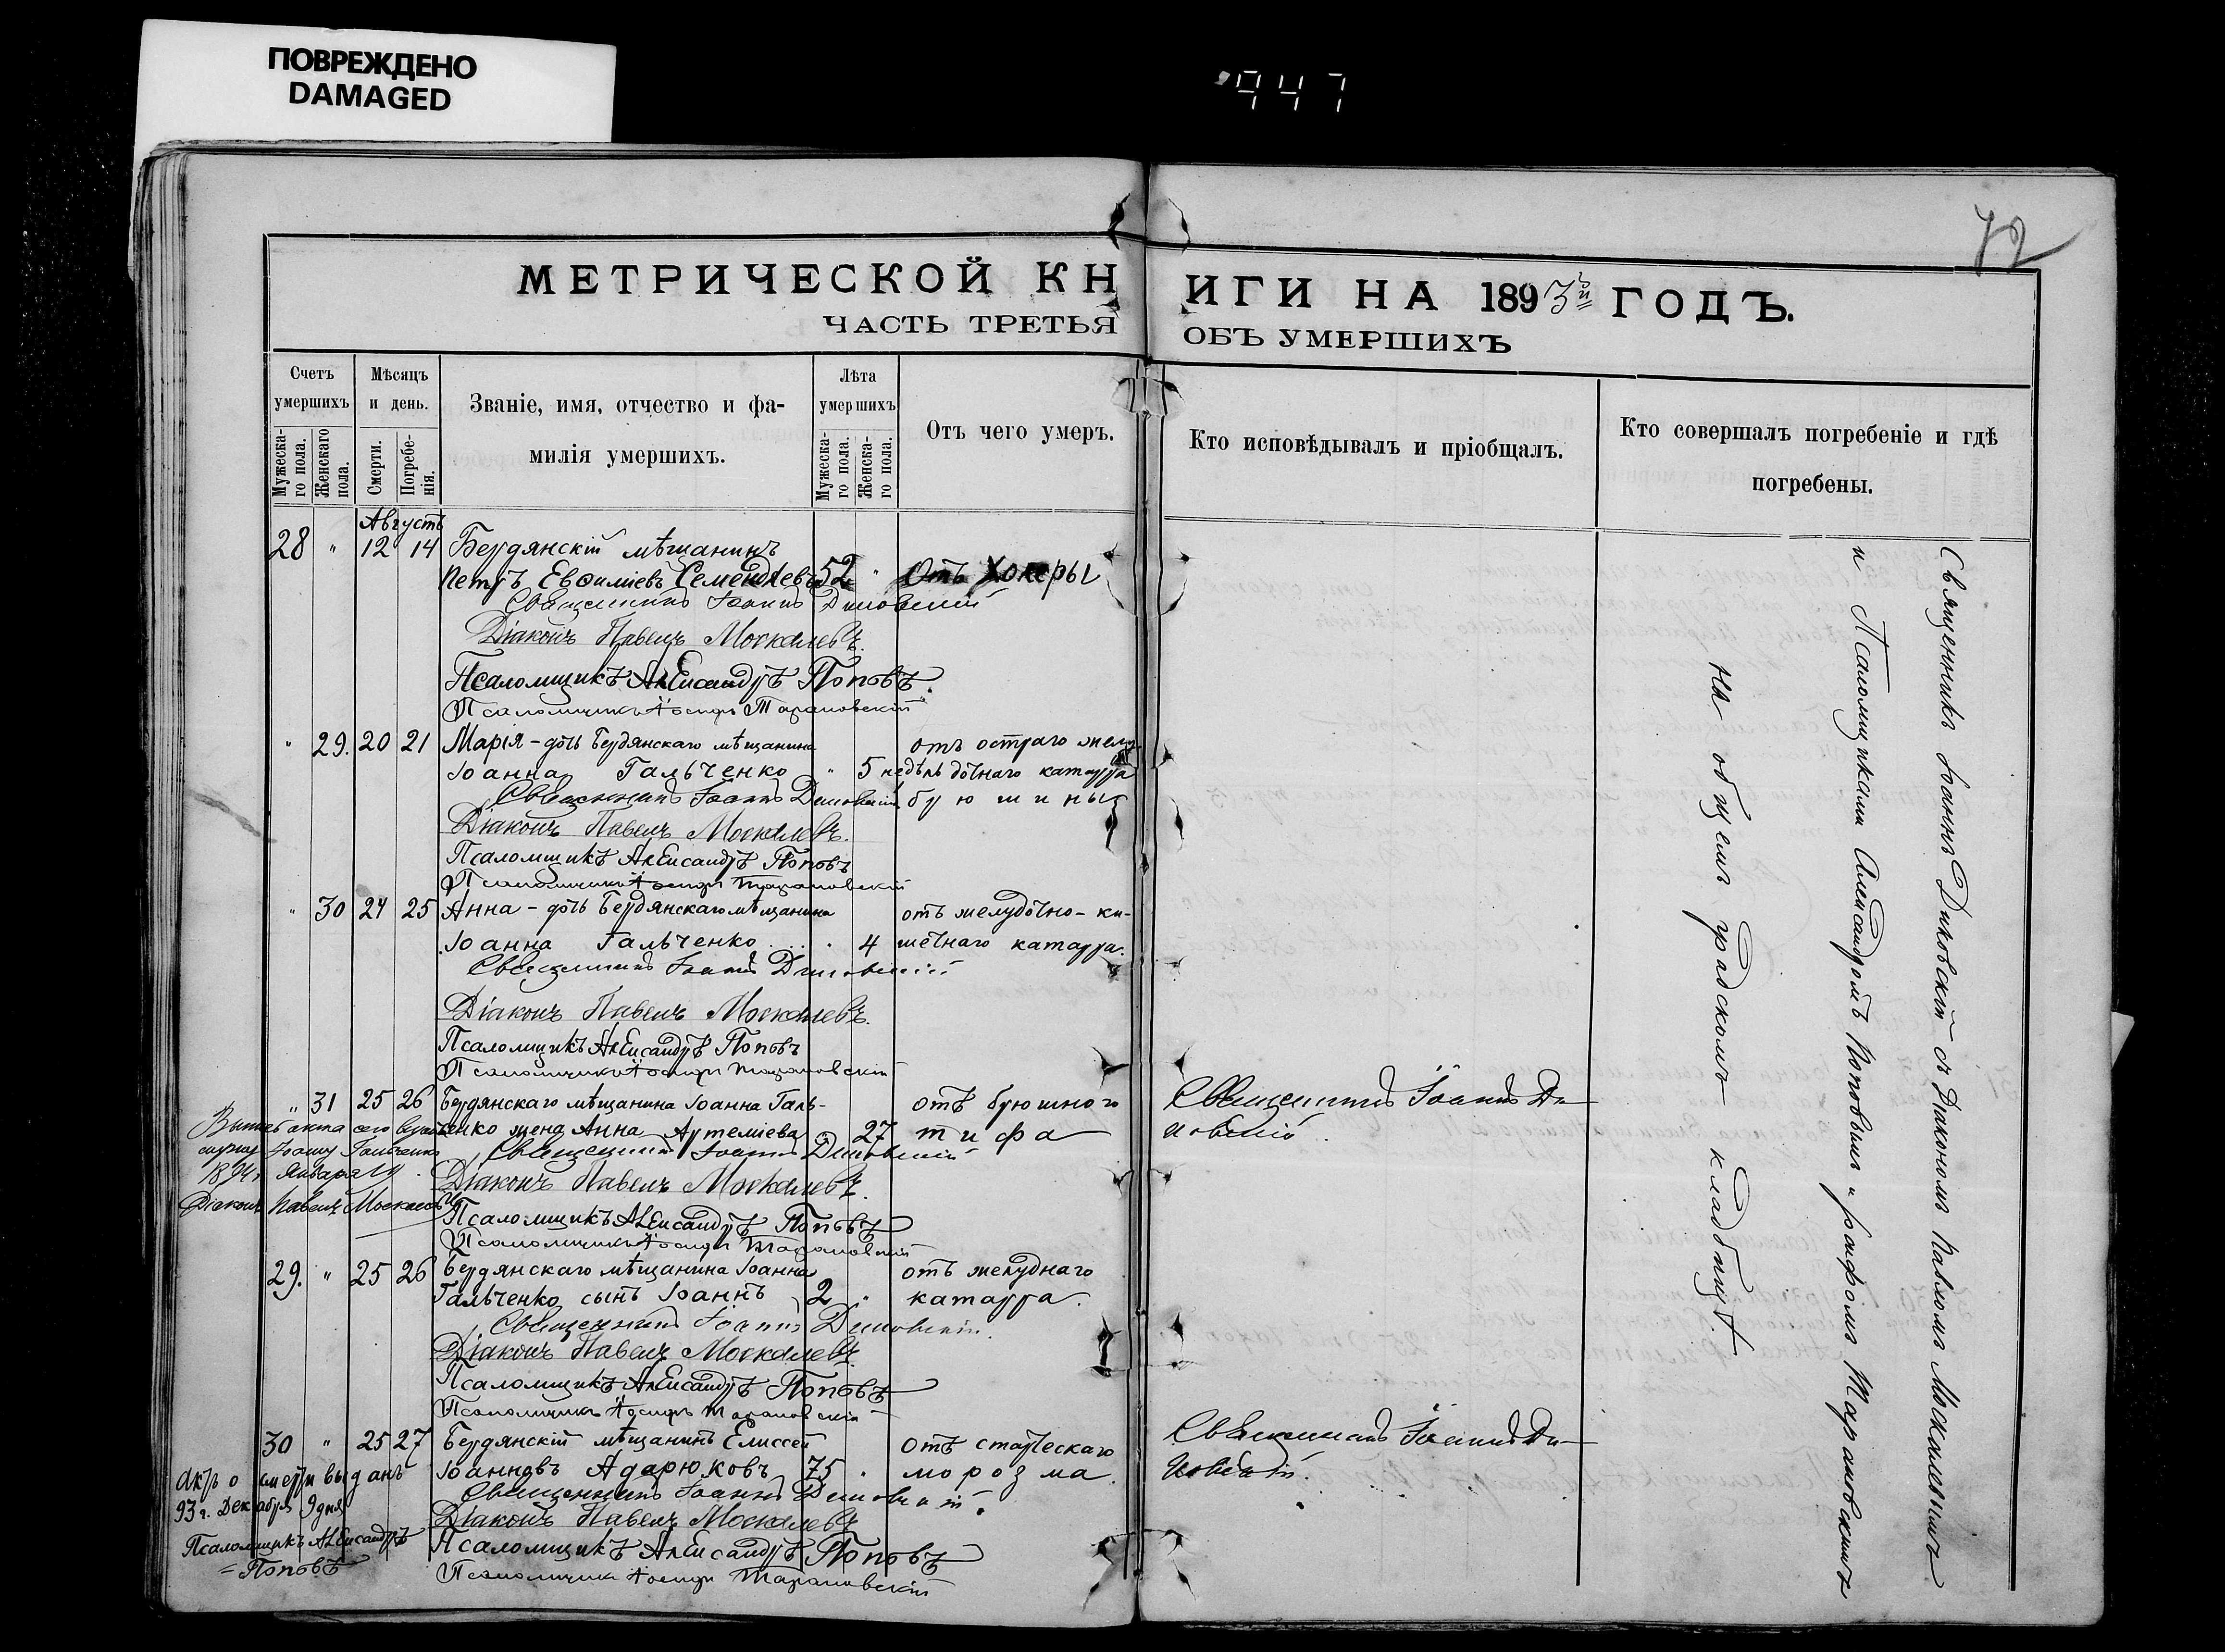 ПОВРЕЖДЕНО
DAMAGED
947
72
МЕТРИЧЕСКОЙ КНИГИ НА 1893й ГОДЪ.
ЧАСТЬ ТРЕТЬЯ ОБЪ УМЕРШИХЪ
Счетъ умершихъ
Мужеска-го пола.
Женскаго пола.
Мѣсяцъ и день.
Смерти.
Погребе-нія.
Званіе, имя, отчество и фа-
милія умершихъ.
Лѣта умершихъ
Мужеска-го пола.
Женска-го пола.
Отъ чего умеръ.
Кто исповѣдывалъ и пріобщалъ.
Кто совершалъ погребеніе и гдѣ
погребены.
Августъ
28 " 12 14 Бердянскій мѣщанинъ
Петръ Евѳиміевъ Семендяевъ 52 " Отъ Холеры
Священникъ Іоаннъ Диковскій
Діаконъ Павелъ Москалевъ.
Псаломщикъ Александръ Поповъ.
Псаломщикъ Іосифъ Тарановскій
" 29. 20 21 Марія - дочь Бердянскаго мѣщанина отъ остраго желу-
Іоанна Гальченко " 5 недѣль дочнаго катарра
Священникъ Іоаннъ Диковскій брюшины
Діаконъ Павелъ Москалевъ.
Псаломщикъ Александръ Поповъ
Псаломщикъ Іосифъ Тарановскій
" 30 24 25 Анна - дочь Бердянскаго мѣщанина отъ желудочно-ки-
Іоанна Гальченко " 4 шечнаго катарра.
Священникъ Іоаннъ Диковскій
Діаконъ Павелъ Москалевъ.
Псаломщикъ Александръ Поповъ
Псаломщикъ Іосифъ Тарановскій
" 31 25 26 Бердянскаго мѣщанина Іоанна Галь- отъ брюшного Священникъ Іоаннъ Ди-
ченко жена Анна Артеміева " 27 тифа ковскій.
Священникъ Іоаннъ Диковскій
Діаконъ Павелъ Москалевъ.
Псаломщикъ Александръ Поповъ
Псаломщикъ Іосифъ Тарановскій
акта сего
Іоанну Гальченко
1894 г. Января 19
Діаконъ Павелъ Москалевъ
29. " 25 26 Бердянскаго мѣщанина Іоанна отъ желуднаго
Гальченко сынъ Іоаннъ 2 " катарра.
Священникъ Іоаннъ Диковскій.
Діаконъ Павелъ Москалевъ.
Псаломщикъ Александръ Поповъ
Псаломщикъ Іосифъ Тарановскій
30 " 25 27 Бердянскій мѣщанинъ Елиссей отъ старческаго Священникъ Іоаннъ Ди-
Іоанновъ Адарюковъ 75 " морозма. ковскій.
Священникъ Іоаннъ Диковскій.
Діаконъ Павелъ Москалевъ
Псаломщикъ Александръ Поповъ
Псаломщикъ Іосифъ Тарановскій
о смерти выданъ
93 г. Декабря 9 дня
Псаломщикъ Александръ
Поповъ
Священникъ Іоаннъ Диковскій съ Діакономъ Павломъ Москалевымъ
и Псаломщиками Александромъ Поповымъ и Іосифомъ Тарановскимъ
на общемъ градскомъ кладбищѣ.